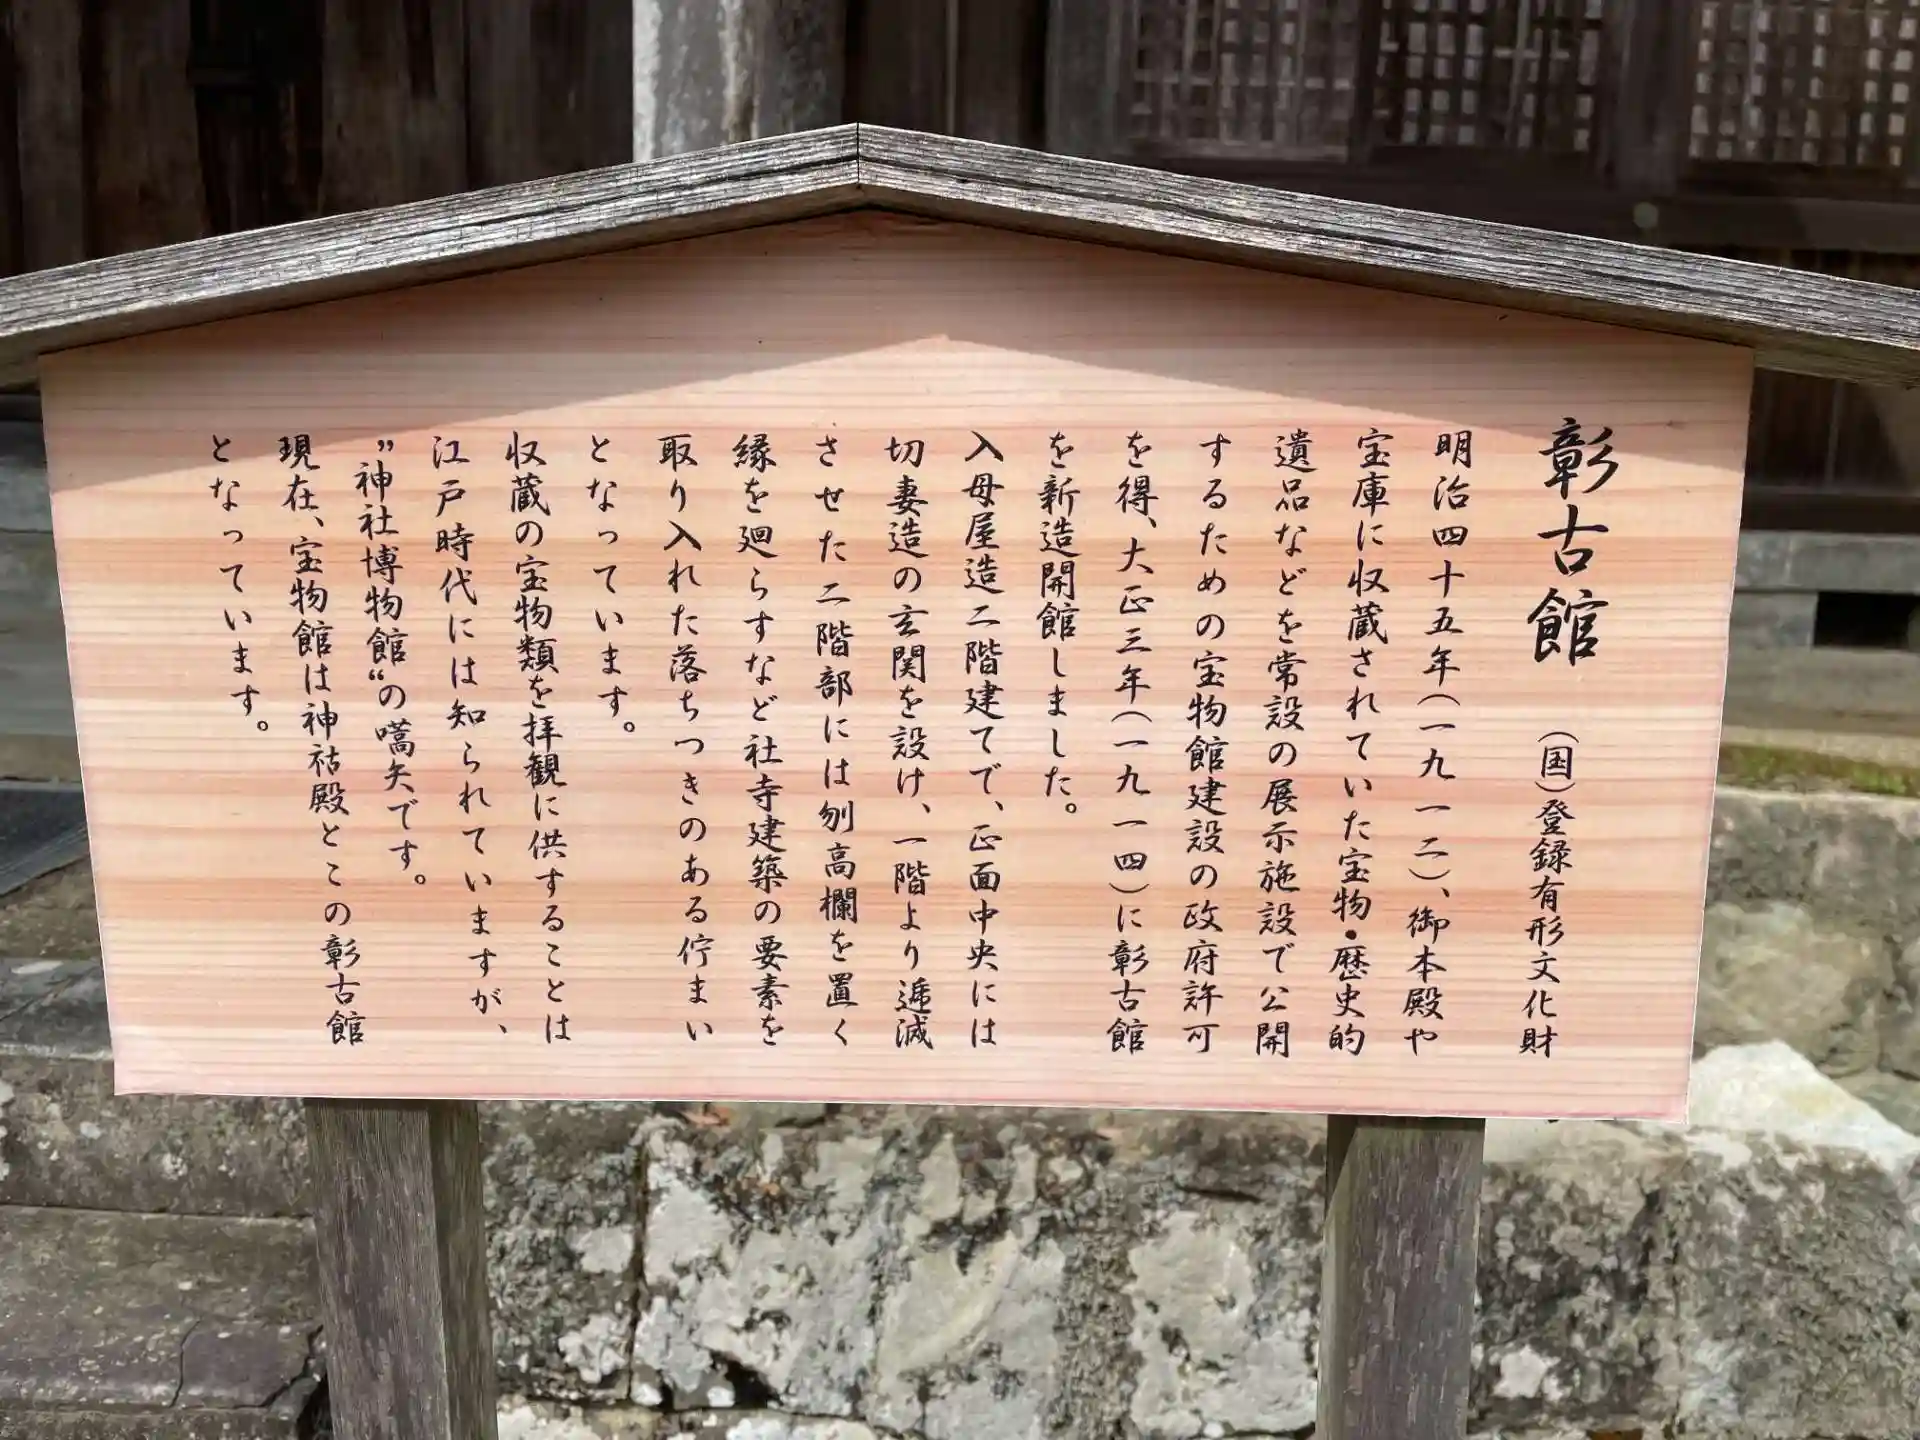 彰古館 （国）登録有形文化財
明治四十五年（一九一二）、御本殿や
宝庫に収蔵されていた宝物・歴史的
遺品などを常設の展示施設で公開
するための宝物館建設の政府許可
を得、大正三年（一九一四）に彰古館
を新造開館しました。
入母屋造二階建てで、正面中央には
切妻造の玄関を設け、一階より逓減
させた二階部には刎高欄を置く
縁を廻らすなど社寺建築の要素を
取り入れた落ちつきのある佇まい
となっています。
収蔵の宝物類を拝観に供することは
江戸時代には知られていますが、
〝神社博物館〟の嚆矢です。
現在、宝物館は神祜殿とこの彰古館
となっています。